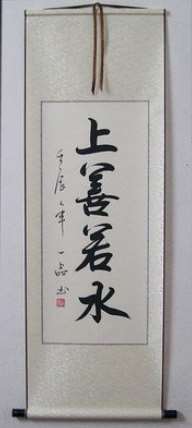 上善若水
壬辰之年 一品书